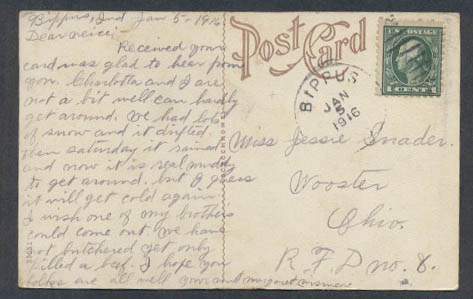 Bippus, Ind Jan 5 - 1916
Dear neice:
Received your
card was glad to hear from
you. Charlotta and I are
not a bit well can hardly
get around. We had lots
of snow and it drifted
then saturday it rained
and now it is real muddy
to get around. but I guess
it will get cold again
I wish one of my brothers
could come out. We have
not butchered yet only
killed a beef. I hope you
folks are all well your aunt
Post Card
BIPPUS
JAN
5
1916
U.S. POSTAGE
1 CENT 1
Miss Jessie Snader.
Wooster
Ohio.
R. F. D no. 8.